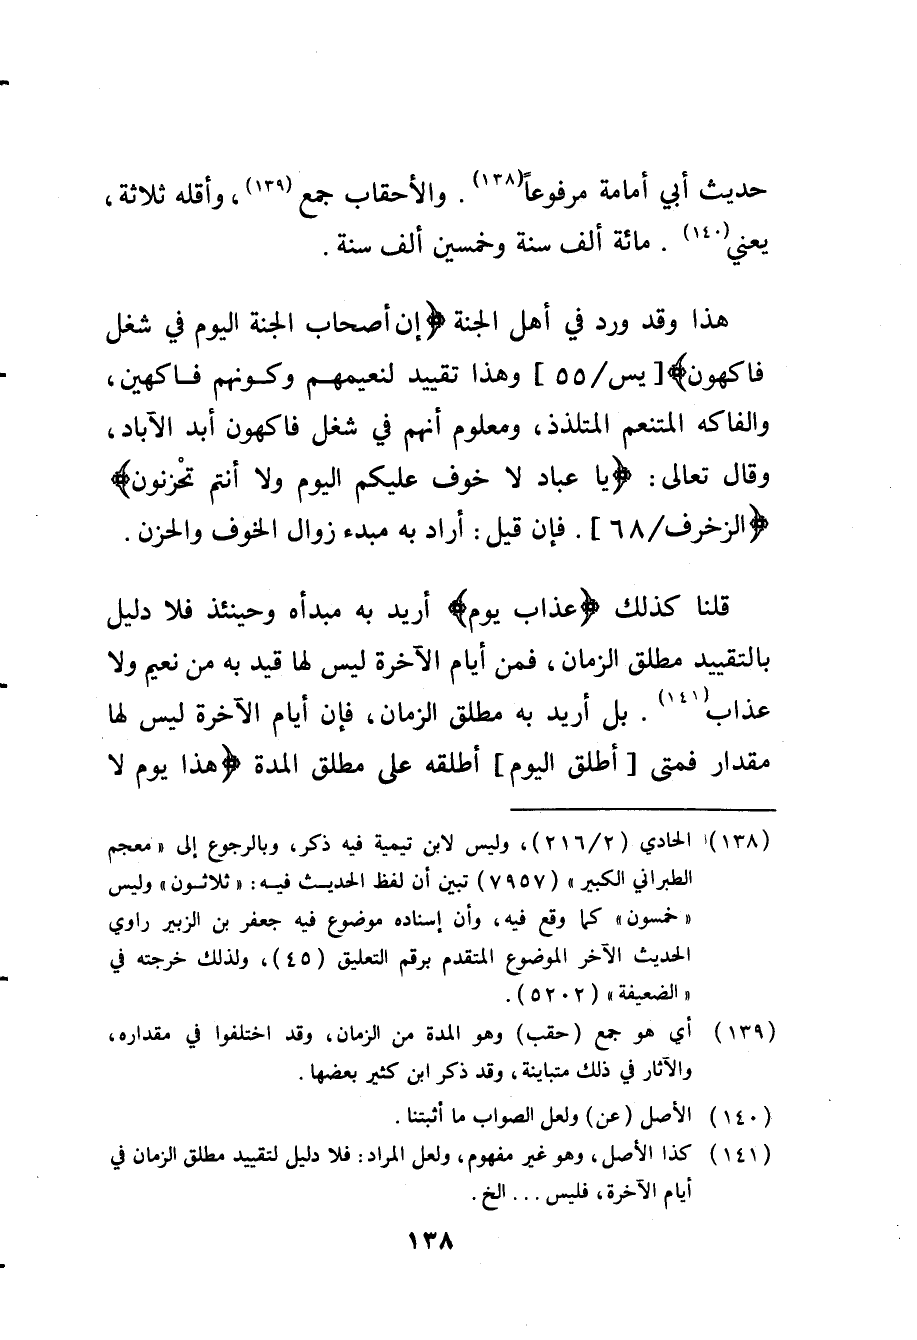 حديث أبي أمامة مرفوعاً(١٣٨) . والأحقاب جمع (١٣٩)، وأقله ثلاثة ،
يعني(١٤٠) . مائة ألف سنة وخمسين ألف سنة .
هذا وقد ورد في أهل الجنة ﴿إن أصحاب الجنة اليوم في شغل
فاكهون﴾[ يس/٥٥ ] وهذا تقييد لنعيمهم وكونهم فاكهين ،
والفاكه المتنعم المتلذذ ، ومعلوم أنهم في شغل فاكهون أبد الآباد ،
وقال تعالى : ﴿يا عباد لا خوف عليكم اليوم ولا أنتم تحْزنون﴾
﴿الزخرف/٦٨ ] . فإن قيل : أراد به مبدء زوال الخوف والحزن .
قلنا كذلك ﴿عذاب يوم﴾ أريد به مبدأه وحينئذ فلا دليل
بالتقييد مطلق الزمان ، فمن أيام الآخرة ليس لها قيد به من نعيم ولا
عذاب(١٤١) . بل أريد به مطلق الزمان ، فإن أيام الآخرة ليس لها
مقدار فمتى [ أطلق اليوم ] أطلقه على مطلق المدة ﴿هذا يوم لا
(١٣٨) الحادي (٢١٦/٢) ، وليس لابن تيمية فيه ذكر ، وبالرجوع إلى « معجم
الطبراني الكبير » (٧٩٥٧) تبين أن لفظ الحديث فيه : « ثلاثون » وليس
« خمسون » كما وقع فيه ، وأن إسناده موضوع فيه جعفر بن الزبير راوي
الحديث الآخر الموضوع المتقدم برقم التعليق (٤٥) ، ولذلك خرجته في
« الضعيفة » (٥٢٠٢) .
(١٣٩) أي هو جمع (حقب) وهو المدة من الزمان ، وقد اختلفوا في مقداره ،
والآثار في ذلك متباينة ، وقد ذكر ابن كثير بعضها .
(١٤٠) الأصل (عن) ولعل الصواب ما أثبتنا .
(١٤١) كذا الأصل ، وهو غير مفهوم ، ولعل المراد : فلا دليل لتقييد مطلق الزمان في
أيام الآخرة ، فليس ... الخ .
١٣٨